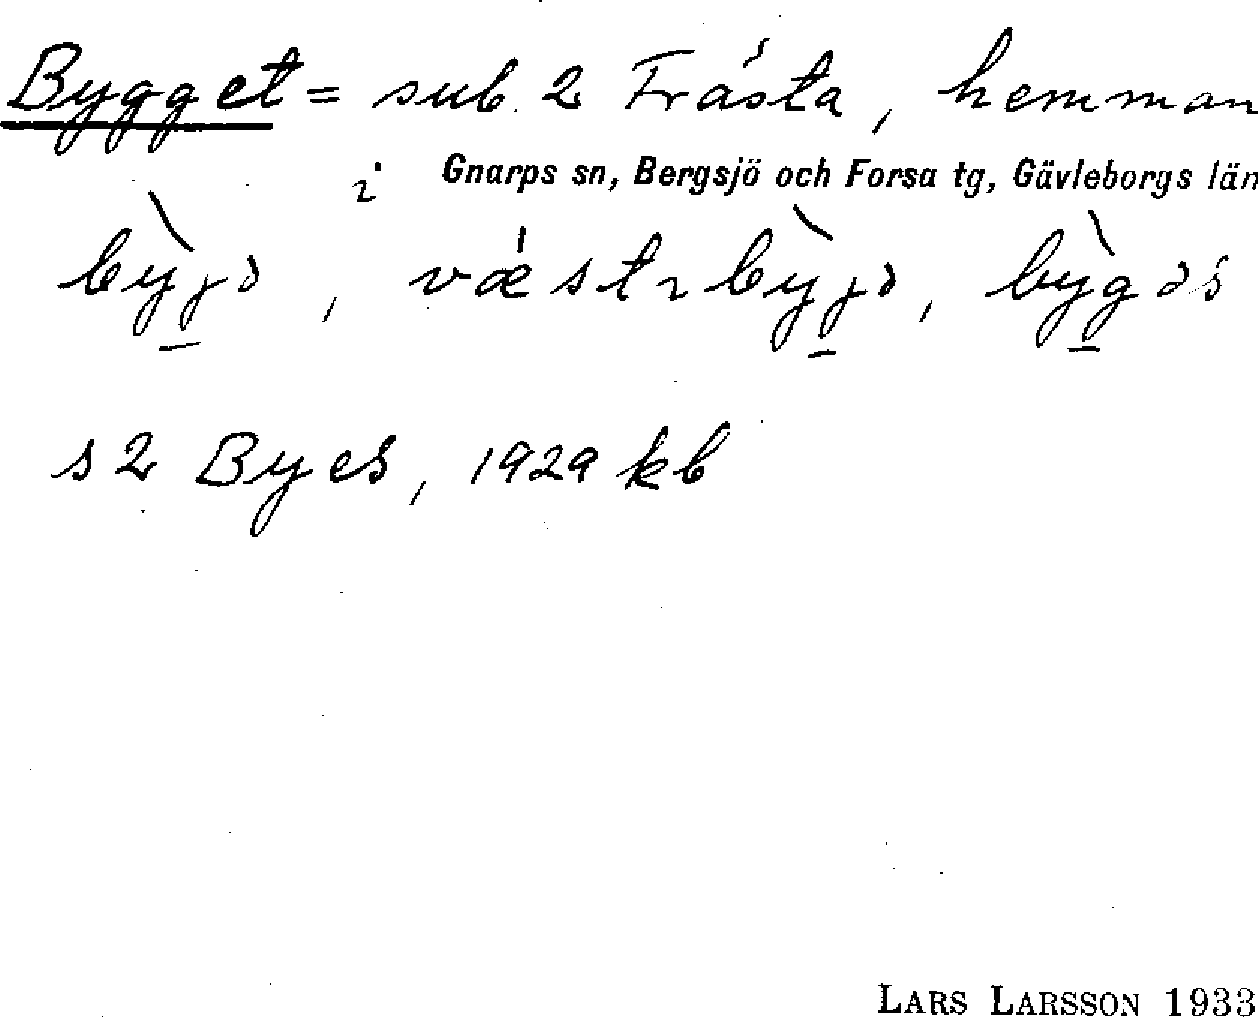 Bygget = sub. 2 Frästa, hemman
i Gnarps sn, Bergsjö och Forsa tg, Gävleborgs län
s 2 Byes, 1929 kb
LARS LARSSON 1933